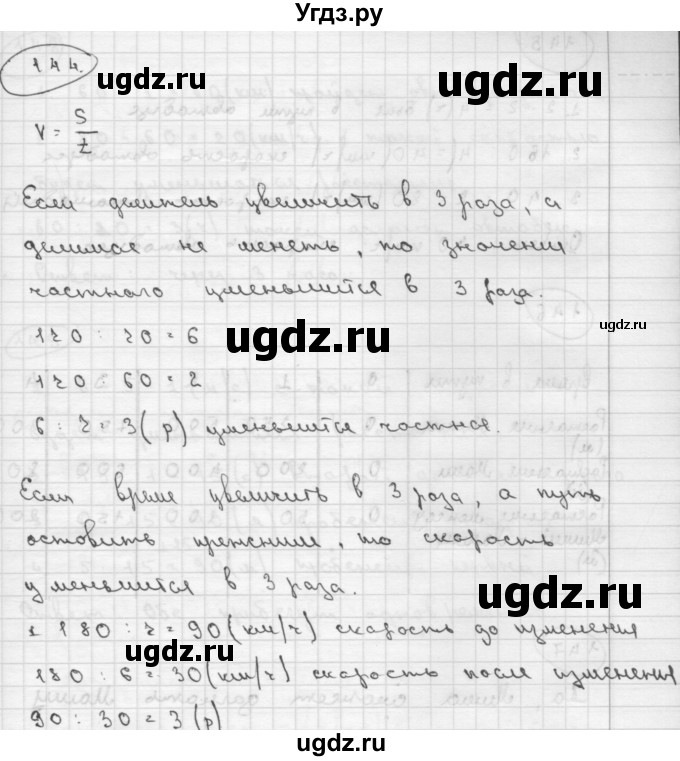 Угдз.ру
144.
ugdz.ru
ugdz.ru
V = S/t
Если делитель увеличить в 3 раза, а
делимое не менеть, то значения
частного уменьшится в 3 раза.
ugdz.ru
ugdz.ru
120 : 20 = 6
120 : 60 = 2
6 : 2 = 3 (р) уменьшится частное.
Если време увеличить в 3 раза, а путь
ugdz.ru
оставить прежним, то скорость
уменьшится в 3 раза.
ugdz.ru
1 180 : 2 = 90 (км/ч) скорость до изменения
ugdz.ru
180 : 6 = 30 (км/ч) скорость после изменения
90 : 30 = 3 (р)
ugdz.ru
ugdz.ru